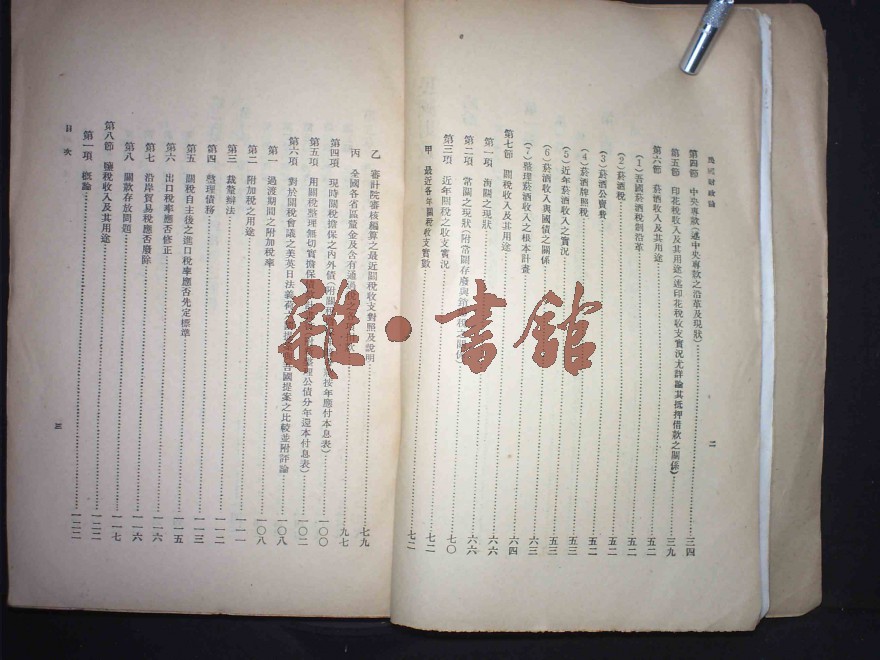 民國財政論
二
第四節 中央專款(述中央專款之沿革及現狀)……三四
第五節 印花稅收入及其用途(述印花稅收支實況尤詳論其抵押借款之關係)……三九
第六節 菸酒收入及其用途……五二
(1)吾國菸酒稅創沿革……五二
(2)菸酒稅……五二
(3)菸酒公賣費……五二
(4)菸酒牌照稅……五三
(5)近年菸酒收入之實況……五三
(6)菸酒收入與國債之關係……六三
(7)整理菸酒收入之根本計畫……六三
第七節 關稅收入及其用途……六四
第一項 海關之現狀……六六
第二項 常關之現狀(附常關存廢與銷……稅……關係)……六六
第三項 近年關稅之收支實況……七〇
甲 最近各年關稅收支實數……七二
乙 審計院審核編算之最近關稅收支對照及說明……七九
丙 全國各省區釐金及含有通過稅之……九七
第四項 現時關稅擔保之內外債(附關……按年應付本息表)……一〇〇
第五項 用關稅整理無切實擔保債……整理公債分年還本付息表)……一〇二
第六項 對於關稅會議之美英日法義荷……提……吾國提案之比較並附評論……一〇八
第一 過渡期間之附加稅率……一〇八
第二 附加稅之用途……一一一
第三 裁釐辦法……一一二
第四 整理債務……一一三
第五 關稅自主後之進口稅率應否先定標準……一一五
第六 出口稅率應否修正……一一六
第七 沿岸貿易稅應否廢除……一一六
第八 關款存放問題……一一七
第八節 鹽稅收入及其用途……一二二
第一項 概論……一二二
目次
三
雜·書館